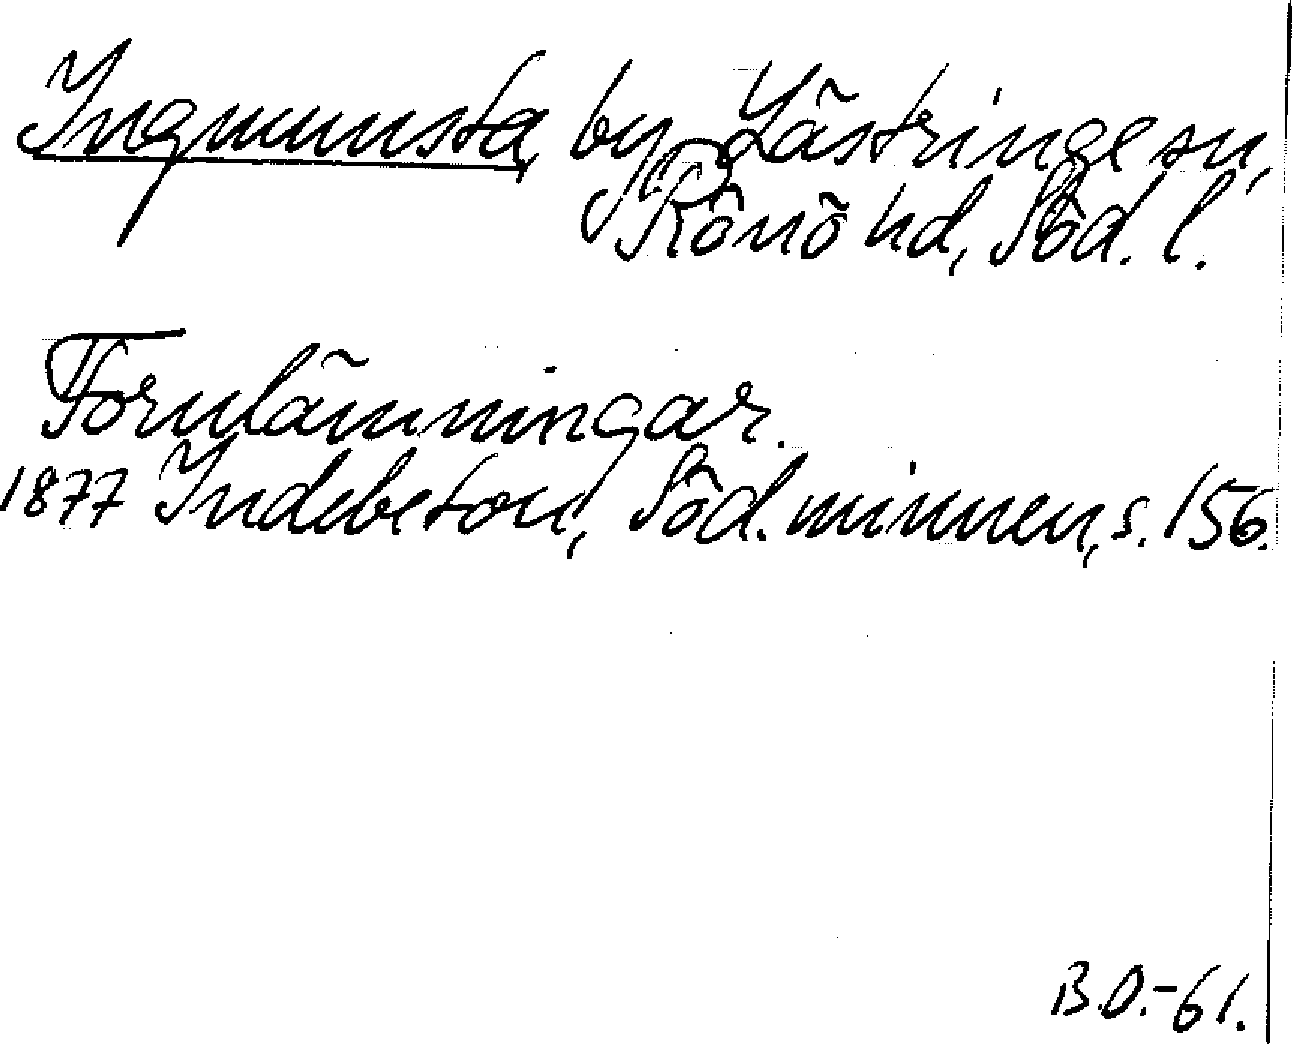 Ingmunsta, by, Lästringe sn,
Rönö hd, Söd. l.
Fornlämningar.
1877 Indebetou, Söd. minnen, s. 156.
B.O.-61.